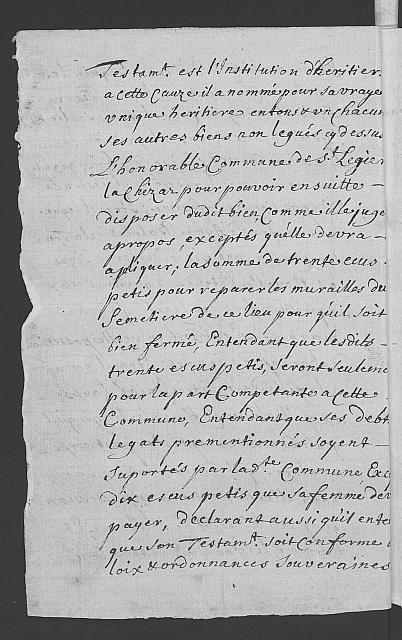 Testamt. est l'Institution d'heritier.
a cette Cauze il a nommé pour sa vraye
vnique heritiere en tous & vn chacun
ses autres biens non legués cy dessus
L'honorable Commune de St. Legier
la Chizaz pour pouvoir en suitte –
disposer du dit bien Comme ille juge
a propos, exceptés qu'elle devra –
apliquer, la somme de trente ecus
petis pour reparer les murailles du
Semetiere de ce lieu pour quil soit
bien fermé, Entendant que lesdits –
trente escus petis, seront seuleme
pour la part Competante a cette
Commune, Entendant que ses debt
legats prementionnés soyent –
suportés par ladte. Commune, Exc
dix escus petis que sa femme dev
payer, declarant aussi quil ente
que son Testamt. soit Conforme
loix & ordonnances Souveraines